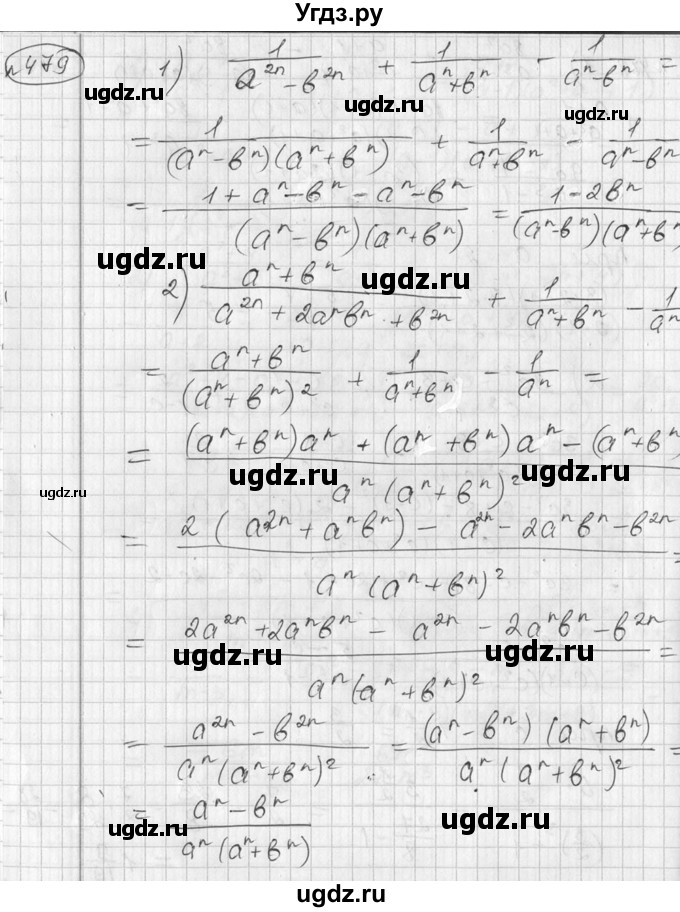 Угдз.ру
№479
1) 1/(a^2n − в^2n) + 1/(a^n + в^n) − 1/(a^n − в^n) =
ugdz.ru ugdz.ru ugdz.ru
= 1/((a^n − в^n)(a^n + в^n)) + 1/(a^n + в^n) − 1/(a^n − в^n)
= (1 + a^n − в^n − a^n − в^n)/((a^n − в^n)(a^n + в^n)) = (1 − 2в^n)/((a^n − в^n)(a^n + в^n)
ugdz.ru ugdz.ru
2) (a^n + в^n)/(a^2n + 2a^n в^n + в^2n) + 1/(a^n + в^n) − 1/a^n
= (a^n + в^n)/(a^n + в^n)^2 + 1/(a^n + в^n) − 1/a^n =
= ((a^n + в^n)a^n + (a^n + в^n)a^n − (a^n + в^n)/(a^n (a^n + в^n)^2)
ugdz.ru ugdz.ru
ugdz.ru
= (2(a^2n + a^n в^n) − a^2n − 2a^n в^n − в^2n)/(a^n (a^n + в^n)^2) =
= (2a^2n + 2a^n в^n − a^2n − 2a^n в^n − в^2n)/(a^n (a^n + в^n)^2) =
ugdz.ru ugdz.ru
= (a^2n − в^2n)/(a^n (a^n + в^n)^2) = ((a^n − в^n)(a^n + в^n))/(a^n (a^n + в^n)^2) =
= (a^n − в^n)/(a^n (a^n + в^n))
ugdz.ru ugdz.ru
ugdz.ru